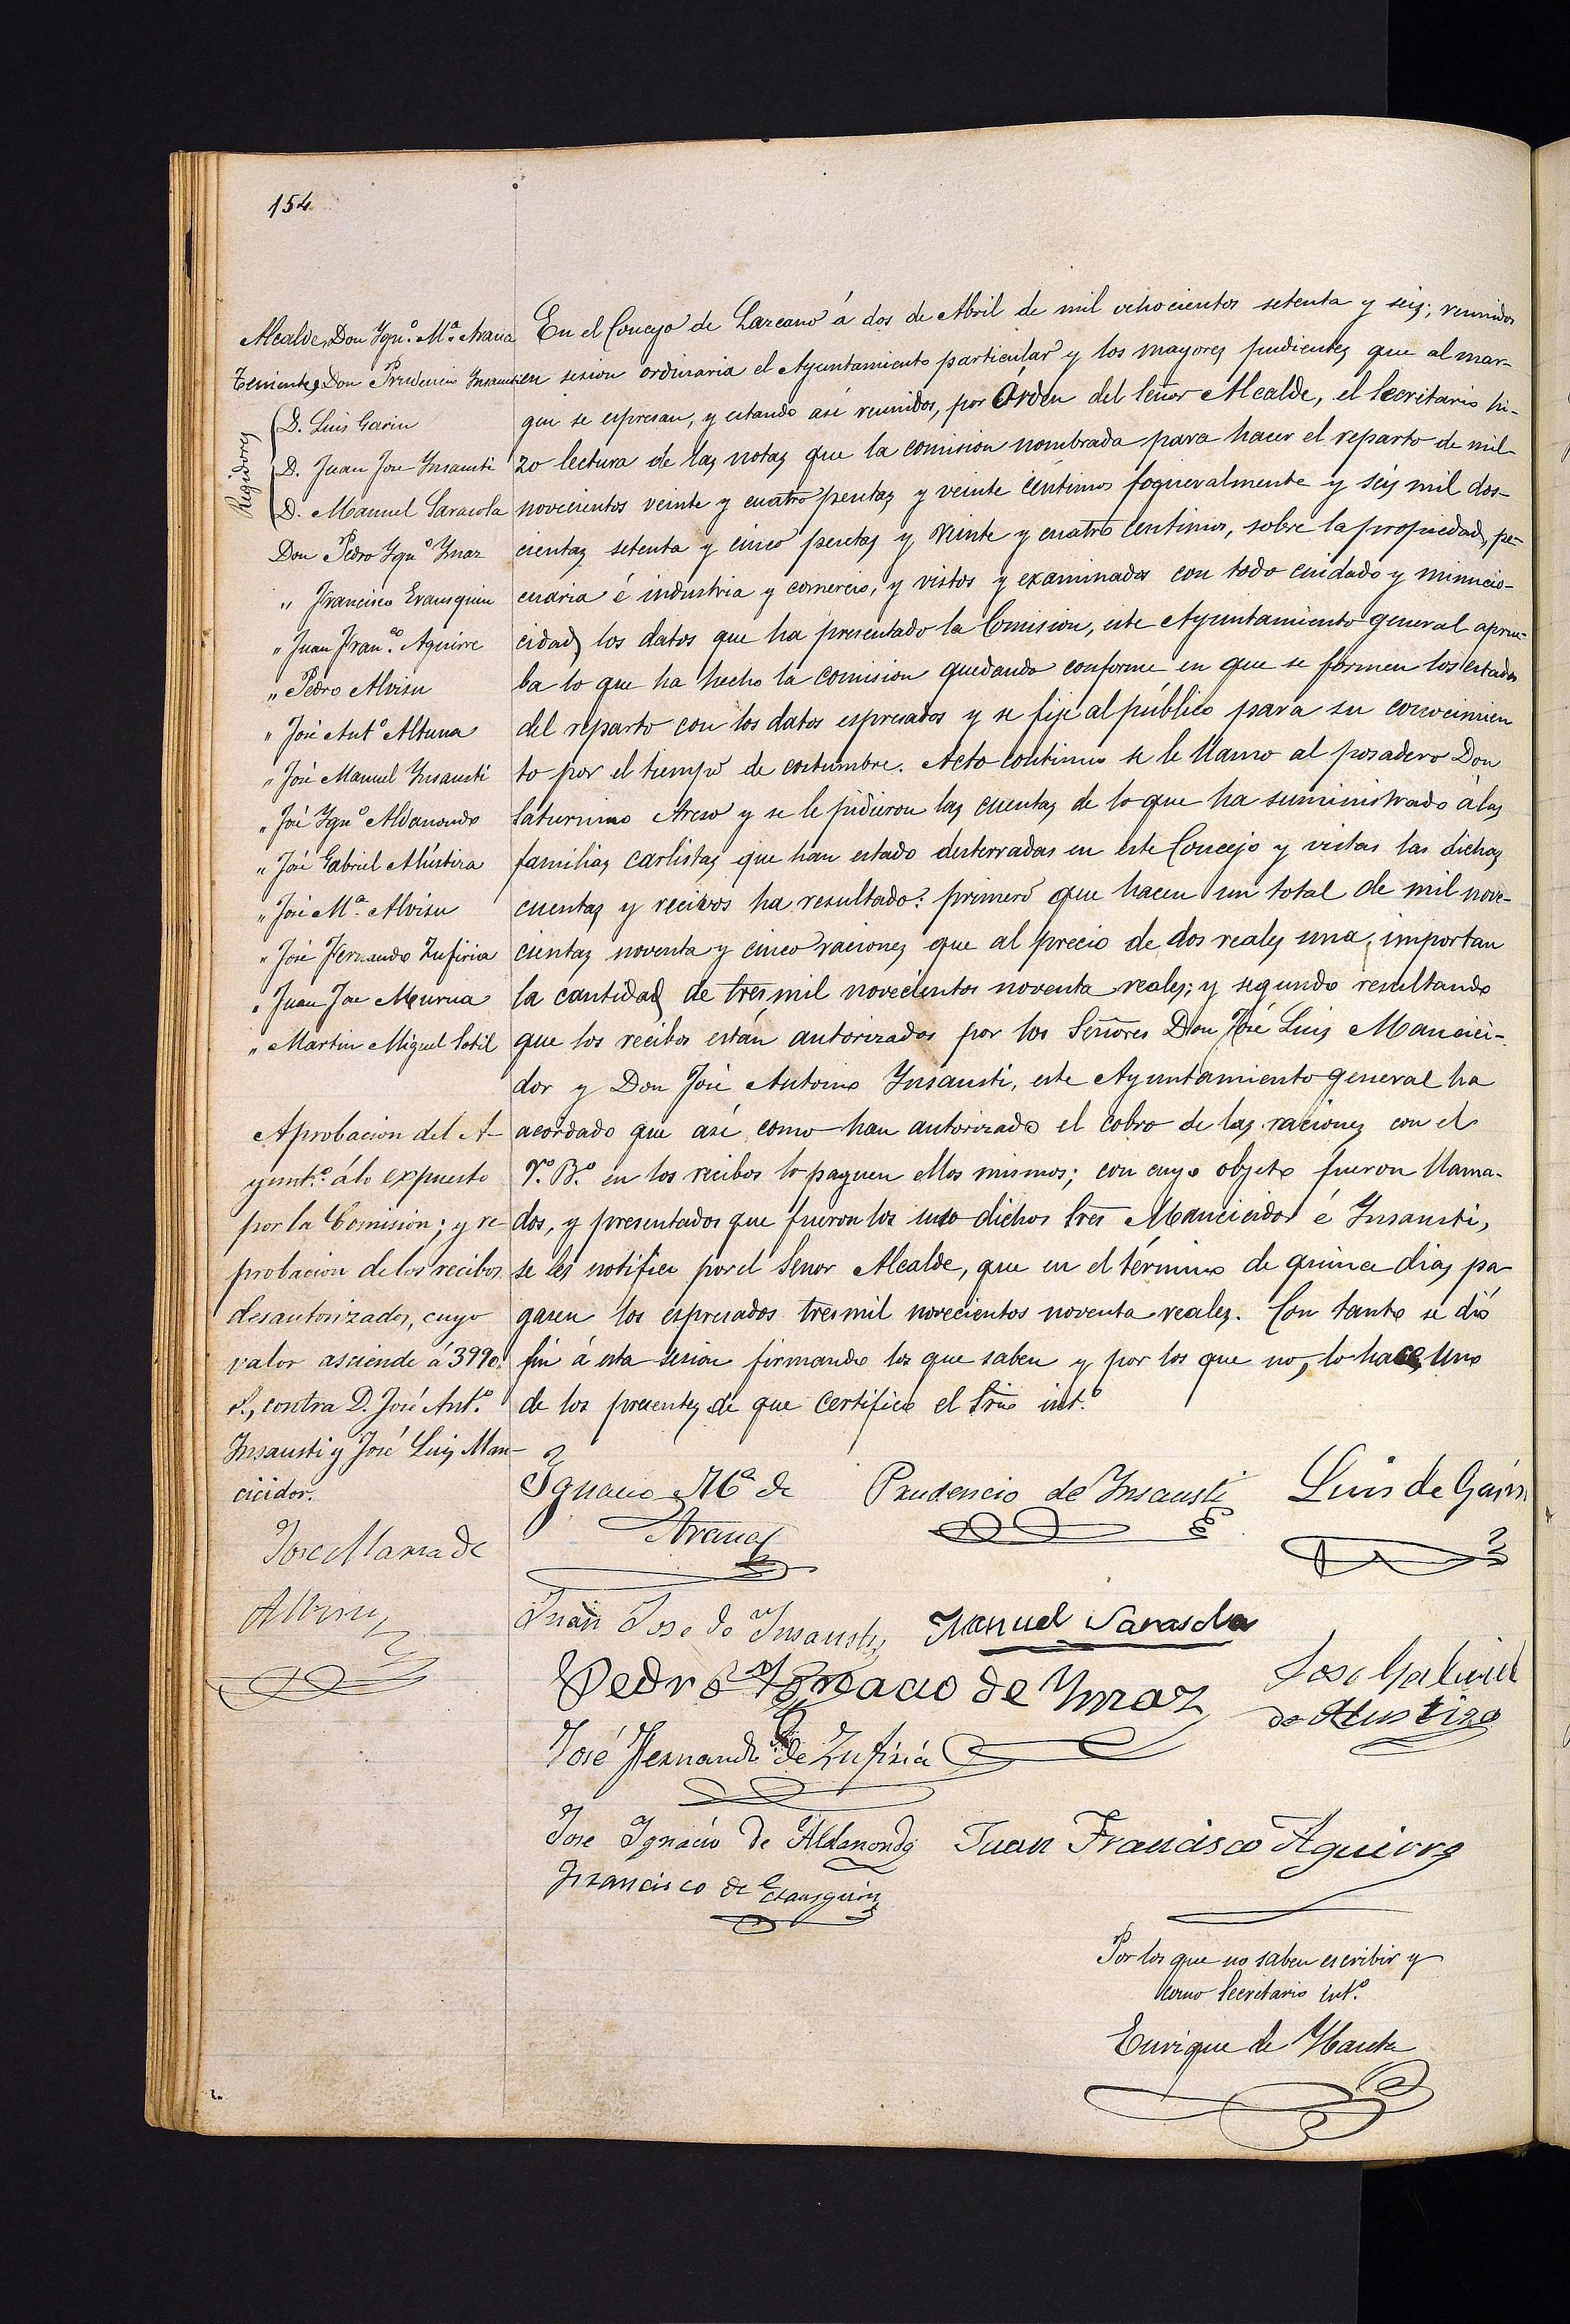 154
Alcalde, Don Ygn.º M.ª Arana
Teniente, Don Prudencio Insausti
Regidores
D. Luis Garin
D. Juan José Insausti
D. Manuel Sarasola
Don Pedro Ygn.º Ymaz
" Francisco Erausquin
" Juan Fran.co Aguirre
" Pedro Alvisu
" José Ant.º Altuna
" José Manuel Insausti
" José Ygn.º Aldanondo
" José Gabriel Alústiza
" José M.ª Alvisu
" José Fernando Zufiria
" Juan José Murua
" Martin Miguel Sotil
Aprobacion del A-
yunt.º á lo expuesto
por la Comision; y re-
probacion de los recibos
desautorizados, cuyo
valor asciende á 3990
r.s, contra D. José Ant.º
Insausti y José Luis Man-
cicidor.
En el Concejo de Lazcano á dos de Abril de mil ochocientos setenta y seis; reunidos
en sesion ordinaria el Ayuntamiento particular y los mayores pudientes que al mar-
gen se espresan, y estando asi reunidos, por Órden del Señor Alcalde, el Secritario hi-
zo lectura de las notas que la comision nombrada para hacer el reparto de mil
novecientos veinte y cuatro pesetas y veinte céntimos fogueralmente y seis mil dos-
cientas setenta y cinco pesetas y veinte y cuatro centimos, sobre la propiedad, pe-
cuaria é industria y comercio, y vistos y examinados con todo cuidado y minucio-
cidad los datos que ha presentado la Comision, este Ayuntamiento general aprue-
ba lo que ha hecho la comision quedando conforme en que se formen los estados
del reparto con los datos espresados y se fije al público para su conocimien
to por el tiempo de costumbre. Acto continuo se le llamo al posadero Don
Saturnino Areso y se le pidieron las cuentas de lo que ha suministrado á las
familias carlistas que han estado desterradas en este Concejo y vistas las dichas
cuentas y recivos ha resultado: primero que hacen un total de mil nove-
cientas noventa y cinco raciones que al precio de dos reales una, importan
la cantidad de tres mil novecientos noventa reales; y segundo resultando
que los recibos están autorizados por los Señores Don José Luis Mancici-
dor y Don José Antonio Insausti, este Ayuntamiento general ha
acordado que así como han autorizado el cobro de las raciones con el
V.º B.º en los recibos lo paguen ellos mismos; con cuyo objeto fueron llama-
dos, y presentados que fueron los suso dichos Sres Mancicidor é Insausti,
se les notifica por el Senor Alcalde, que en el término de quince dias pa
gasen los espresados tres mil novecientos noventa reales. Con tanto se dió
fin á esta sesion firmando los que saben y por los que no, lo hace, uno
de los presentes de que certifico el Srio int.º
Ignacio M.ª de
Arana
Prudencio de Insausti
Luis de Garin
Jose Maria de
Alvisu
Juan Jose de Insausti
Manuel Sarasola
Pedro Ygnacio de Ymaz
Jose Gabriel
de Alustiza
José Fernando de Zufiria
Jose Ignacio de Aldanondo
Juan Francisco Aguirre
Francisco de Erausquin
Por los que no saben escribir y
como Secritario int.º
Enrique de